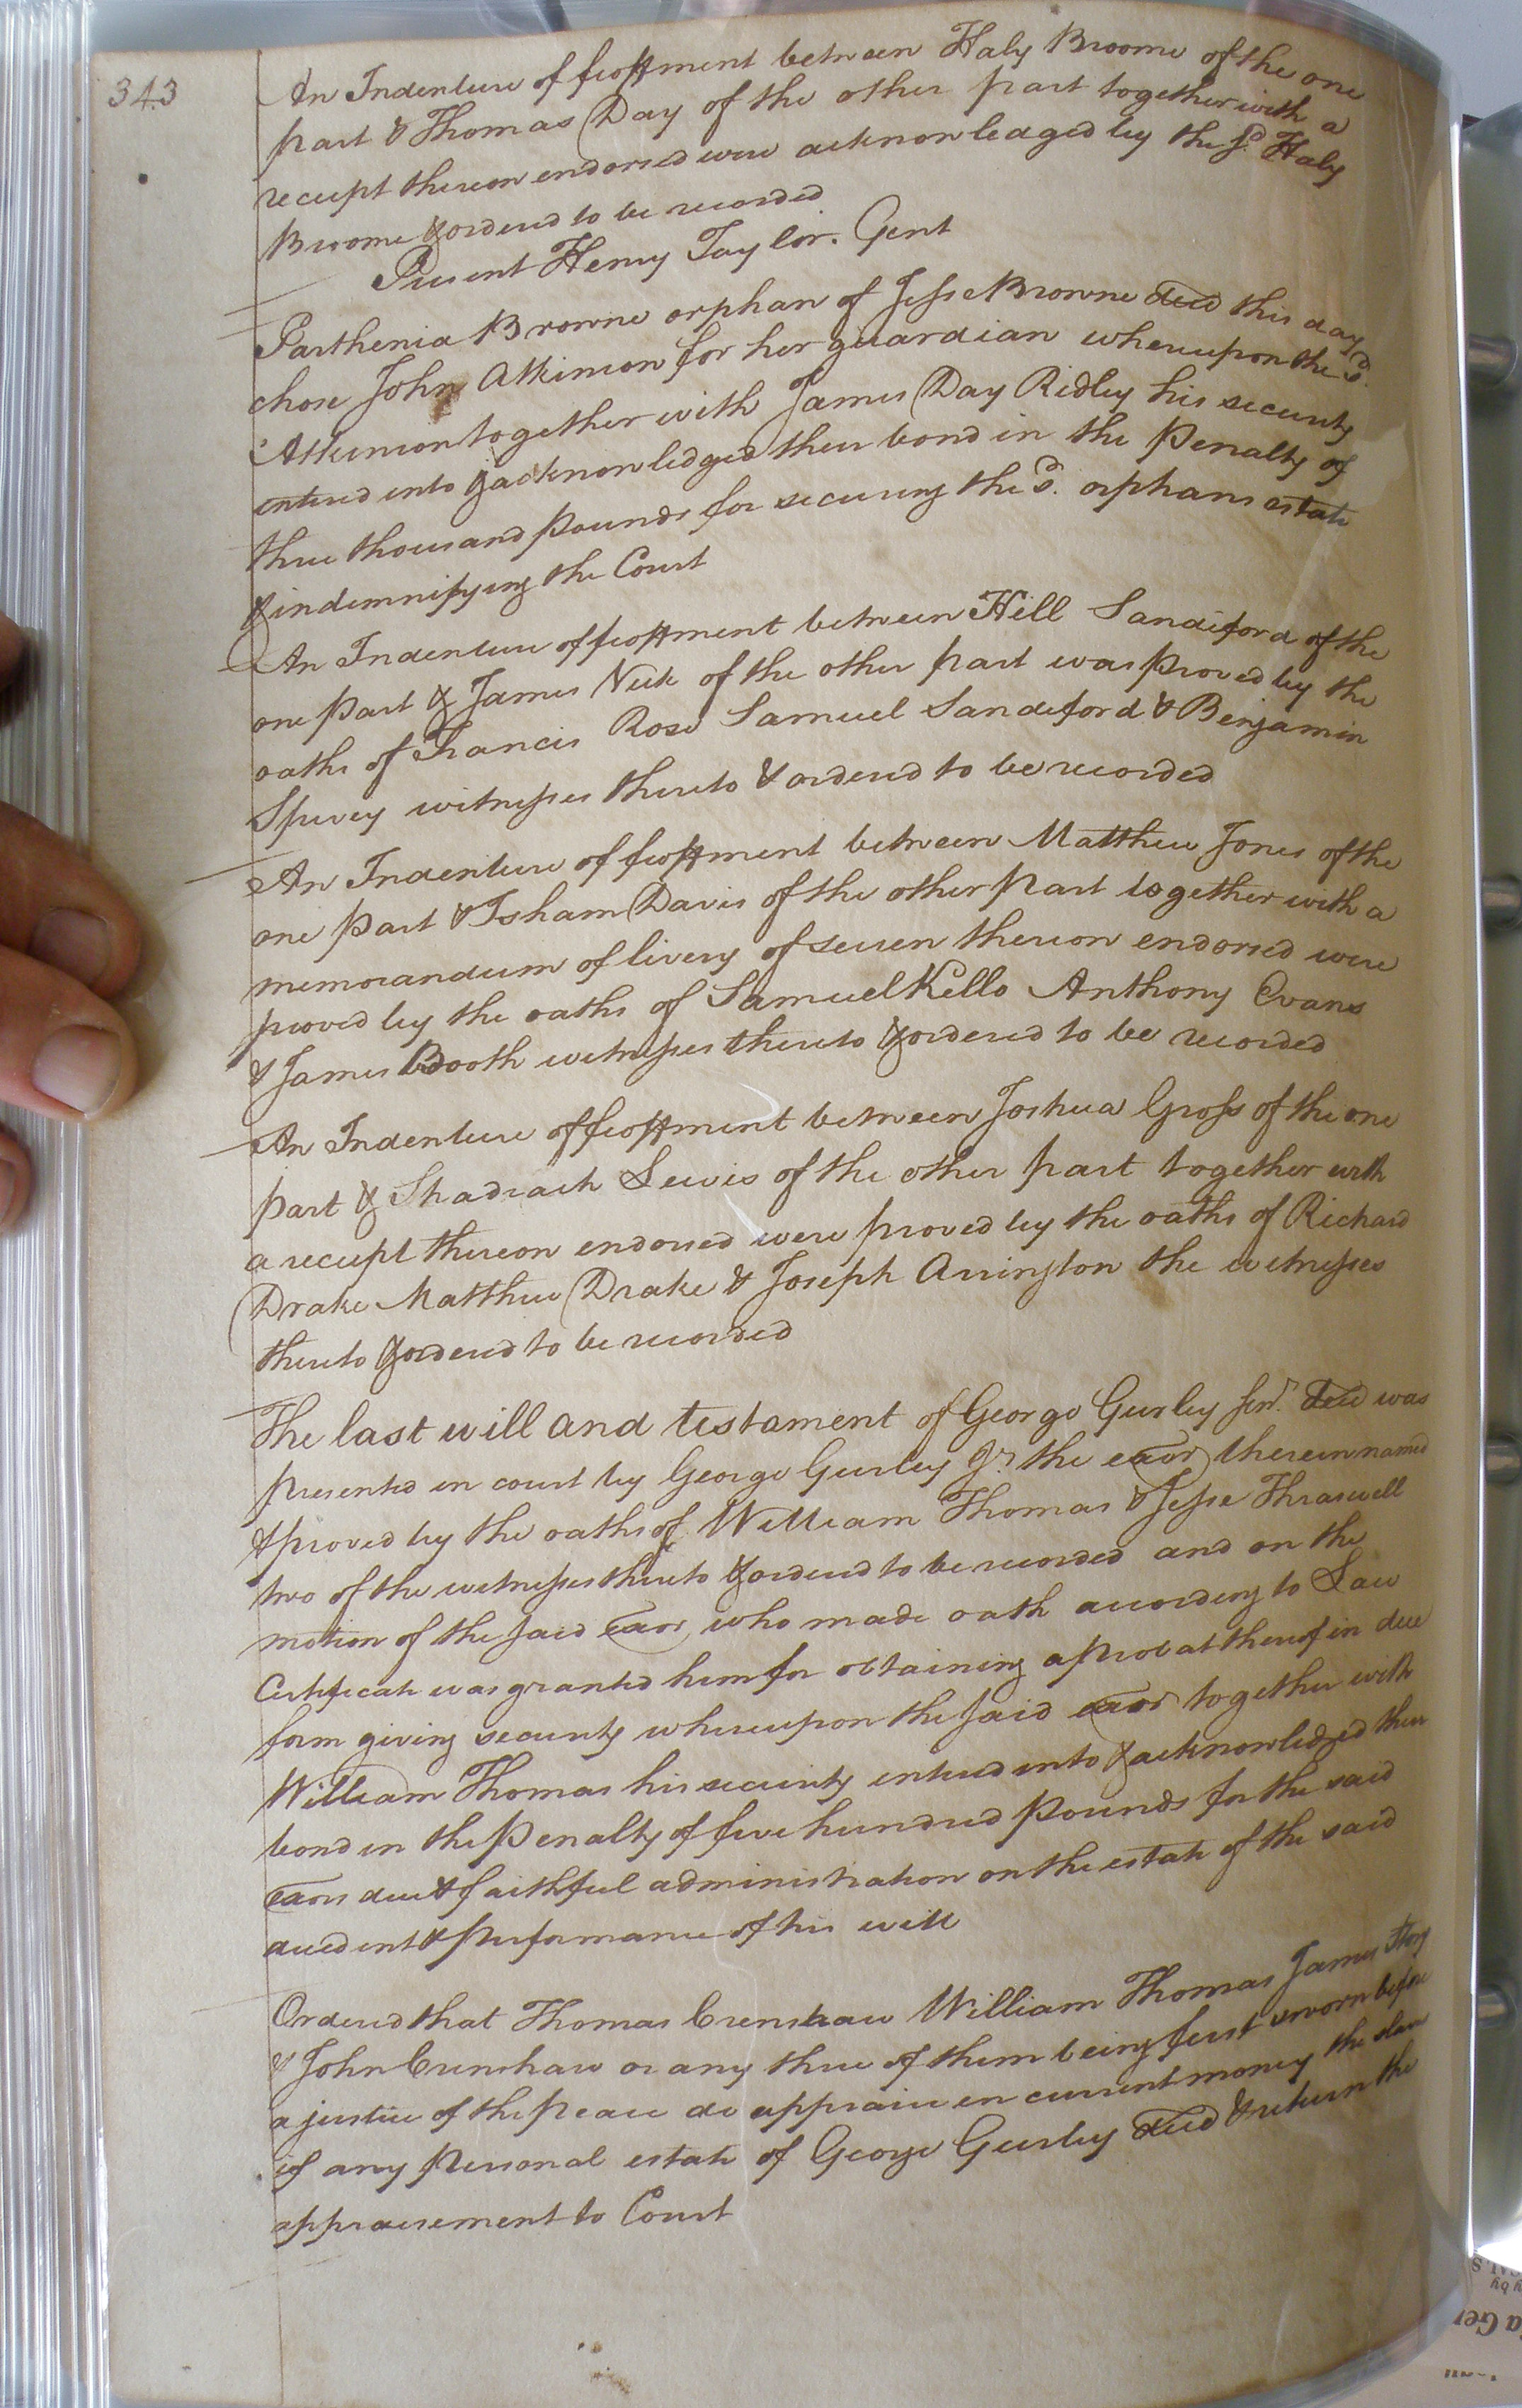 343
An Indenture of feoffment between Haly Broome of the one
part & Thomas Day of the other part together with a
receipt thereon endorsed were acknowledged by the sd. Haly
Broome & ordered to be recorded
Present Henry Taylor. Gent
Parthenia Browne orphan of Jesse Browne decd this day
chose John Atkinson for her guardian whereupon the sd.
Atkinson together with James Day Ridley his security
entered into & acknowledged their bond in the Penalty of
three thousand Pounds for securing the sd. orphans estate
& indemnifying the Court
An Indenture of feoffment between Hill Sandiford of the
one Part & James Vick of the other part was Proved by the
oaths of Francis Rose Samuel Sandeford & Benjamin
Spivey witnesses thereto & ordered to be recorded
An Indenture of feoffment between Matthew Jones of the
one Part & Isham Davis of the other Part together with a
memorandum of livery of seisen thereon endorsed were
proved by the oaths of Samuel Kello Anthony Evans
& James Booth witnesses thereto & ordered to be recorded
An Indenture of feoffment between Joshua Gross of the one
Part & Shadrach Lewis of the other part together with
a receipt thereon endorsed were proved by the oaths of Richard
Drake Matthew Drake & Joseph Arrington the witnesses
thereto & ordered to be recorded
The last will and testament of George Gurley senr. decd was
presented in court by George Gurley Jr. the exor therein named
& proved by the oaths of William Thomas & Jesse Thraswell
two of the witnesses thereto & ordered to be recorded and on the
motion of the said exor who made oath according to Law
Certificate was granted him for obtaining a Probat thereof in due
form giving security whereupon the said exor together with
William Thomas his security entered into & acknowledged their
bond in the Penalty of five hundred Pounds for the said
exors due & faithful administration on the estate of the said
decedent & Performance of his will
Ordered that Thomas Crenshaw William Thomas James
& John Crenshaw or any three of them being first sworn before
a justice of the Peace do appraise in current money the slaves
if any Personal estate of George Gurley decd & return the
appraisement to Court